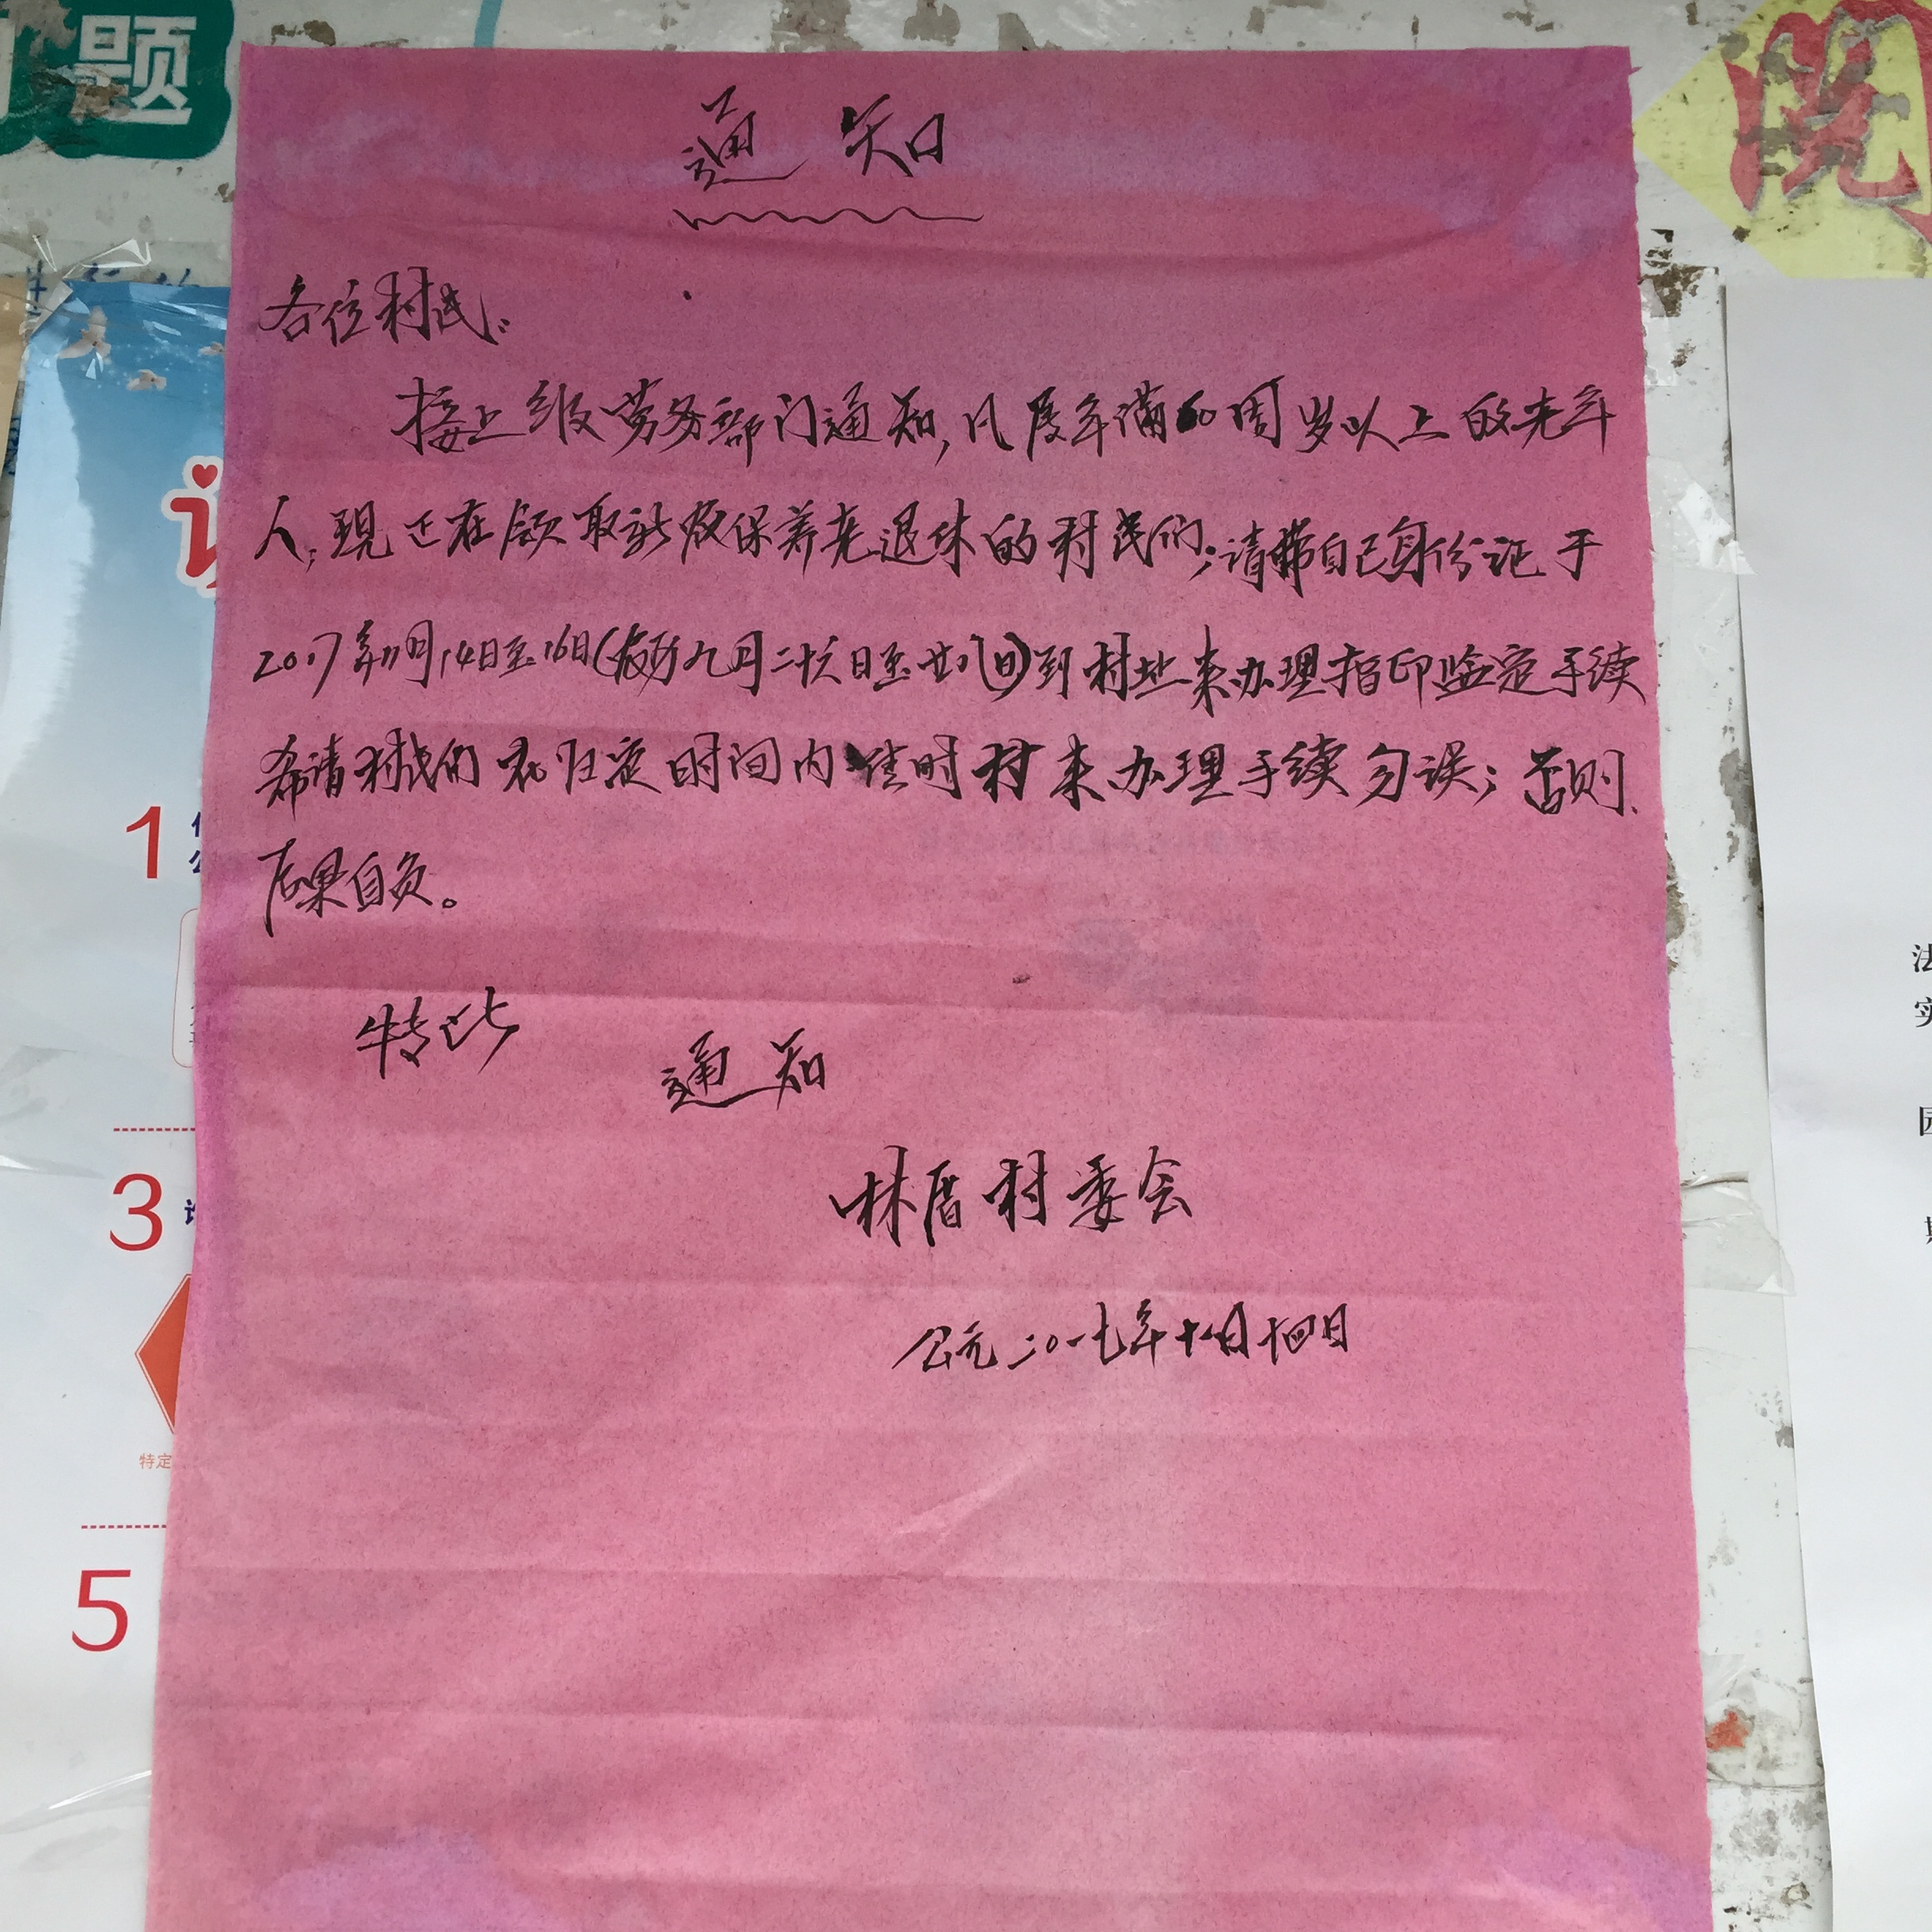 题
阅
通知
各位村民:
接上级劳务部门通知,凡度年满60周岁以上的老年
人;现正在领取新农保养老退休的村民们;请带自己身份证于
2017年11月14日至16日(农历九月二十六日至廿八日)到村址来办理指印监定手续
希请村民们在归定时间内准时村来办理手续勿误;否则
后果自负。
特此
通知
林厝村委会
公元二〇一七年十一月十四日
1
3
特定
5